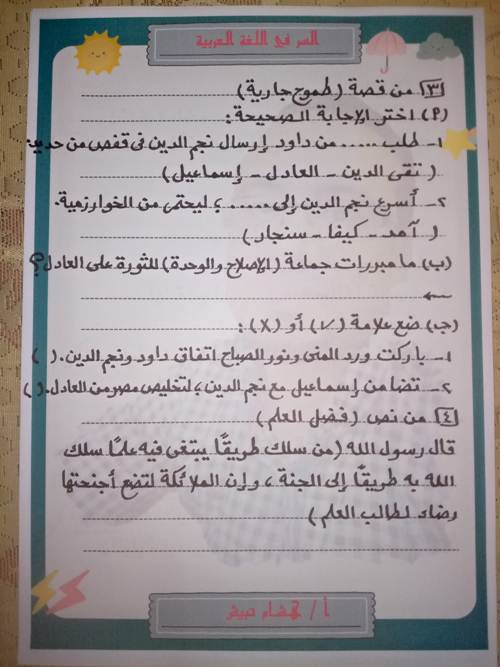 السر في اللغة العربية
[٣] من قصة (طموح جارية)
(٢) اختر الإجابة الصحيحة:
١- طلب ..... من داود إرسال نجم الدين فى قفص من حديد
( تقى الدين - العادل - إسماعيل)
٢- أسرع نجم الدين إلى ..... ؛ ليحتمى من الخوارزمية.
( آمد - كيفا - سنجار )
(ب) ما مبررات جماعة (الإصلاح والوحدة) للثورة على العادل؟
(ج) ضع علامة (√) أو (X) :
١- باركت ورد المنى ونور الصباح اتفاق داود ونجم الدين. ( )
٢- تضامن إسماعيل مع نجم الدين ؛ لتخليص مصر من العادل. ( )
[٤] من نص (فضل العلم)
قال رسول الله (من سلك طريقًا يبتغى فيه علمًا سلك
الله به طريقًا إلى الجنة ، وإن الملائكة لتضع أجنحتها
رضاء لطالب العلم )
أ / هشام حبيش